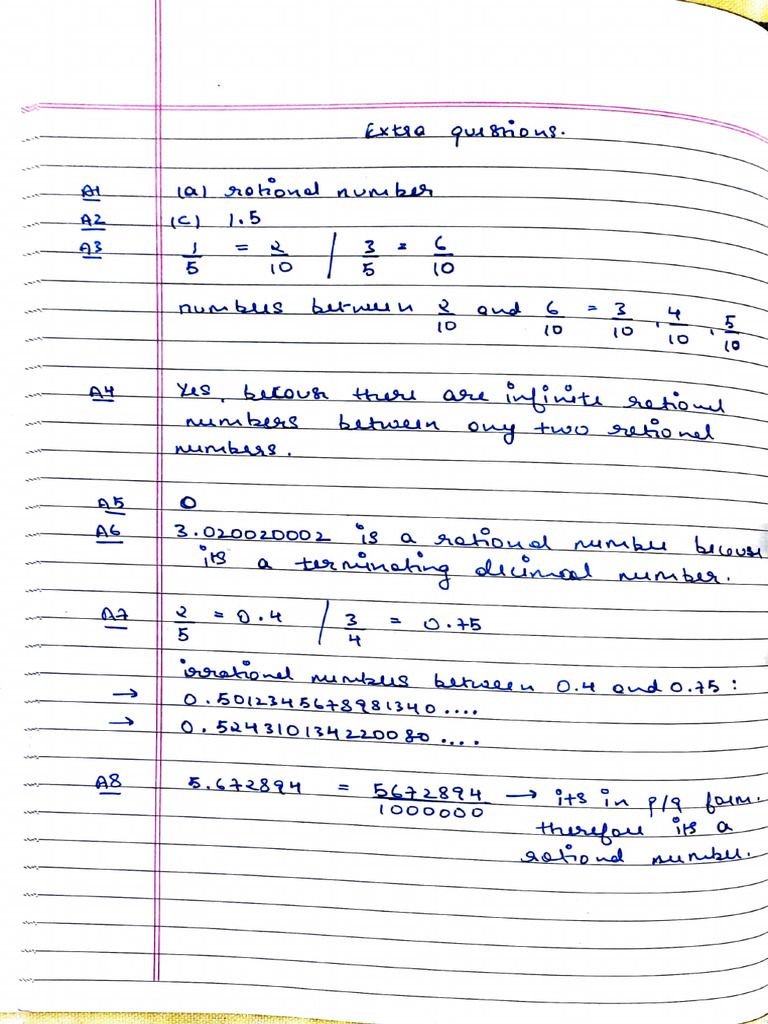 Extra questions.
A1 (a) rational number
A2 (c) 1.5
A3 1/5 = 2/10 / 3/5 = 6/10
numbers between 2/10 and 6/10 = 3/10, 4/10, 5/10
A4 Yes, because there are infinite rational
numbers between any two rational
numbers.
A5 0
A6 3.020020002 is a rational number because
its a terminating decimal number.
A7 2/5 = 0.4 / 3/4 = 0.75
irrational numbers between 0.4 and 0.75 :
→ 0.5012345678981340....
→ 0.524310134220080....
A8 5.672894 = 5672894/1000000 → its in p/q form.
therefore its a
rational number.